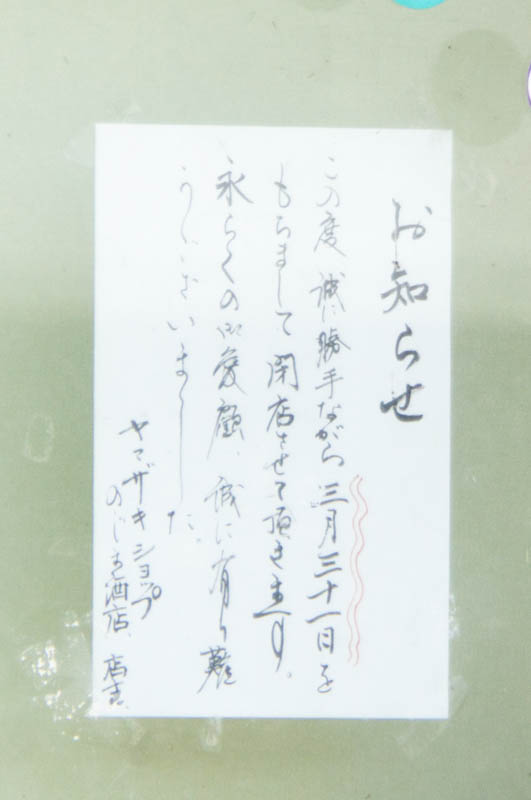 お知らせ
この度 誠に勝手ながら 三月三十一日を
もちまして 閉店させて頂きます。
永らくの御愛顧、誠に有り難
うございました。
ヤマザキショップ
のじま酒店、店主